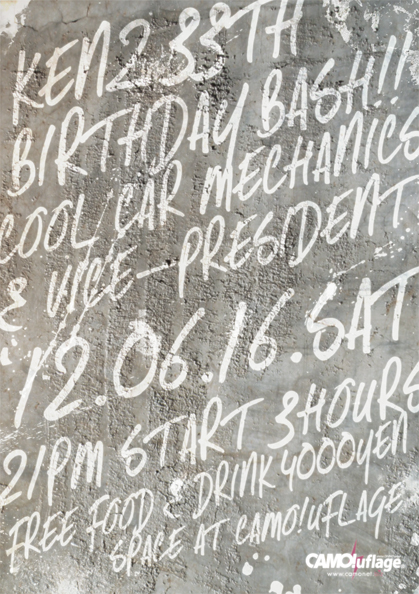 KENZ 38TH
BIRTHDAY BASH!!
COOL CAR MECHANICS
& VICE-PRESIDENT
'12.06.16.SAT
21PM START 3HOURS
FREE FOOD & DRINK 4000YEN
SPACE AT CAMO!UFLAGE
CAMO!uflage